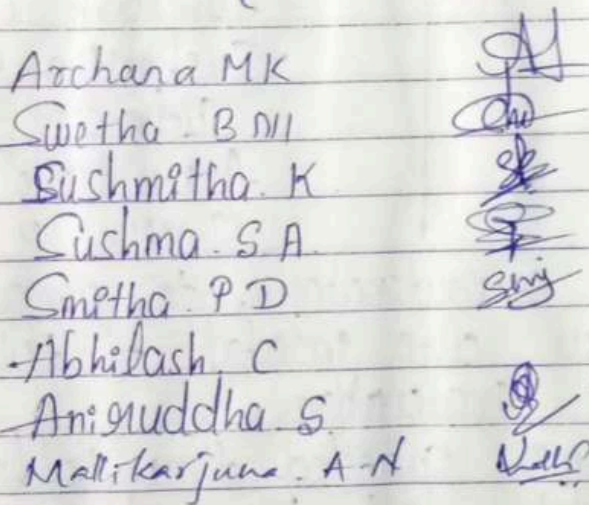 Archana MK
Swetha. B M
Sushmitha. K
Sushma. S A.
Smitha. P D
Abhilash. C
Aniruddha S.
Mallikarjuna. A-N